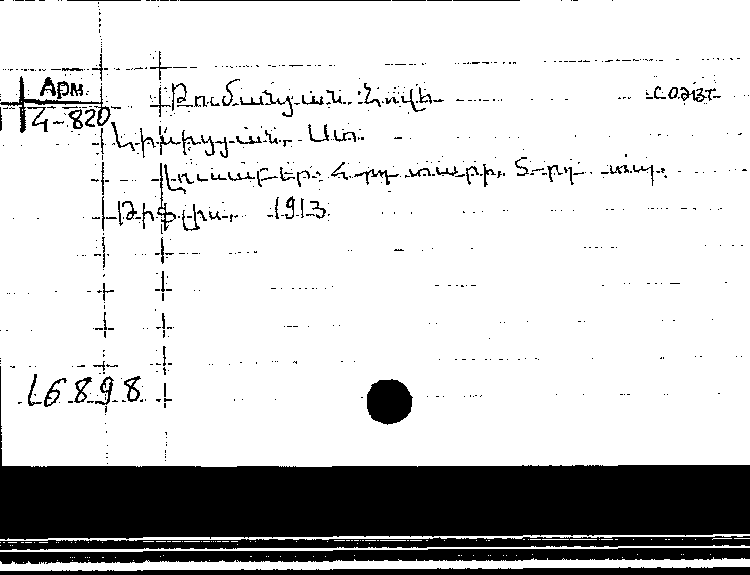 Арм.
4-820
Թումանյան Հովհ. соавт.
Լիսիցյան, Ստ.
Լուսաբեր. 2-րդ տարի, 5-րդ տպ.
Թիֆլիս, 1913
16898